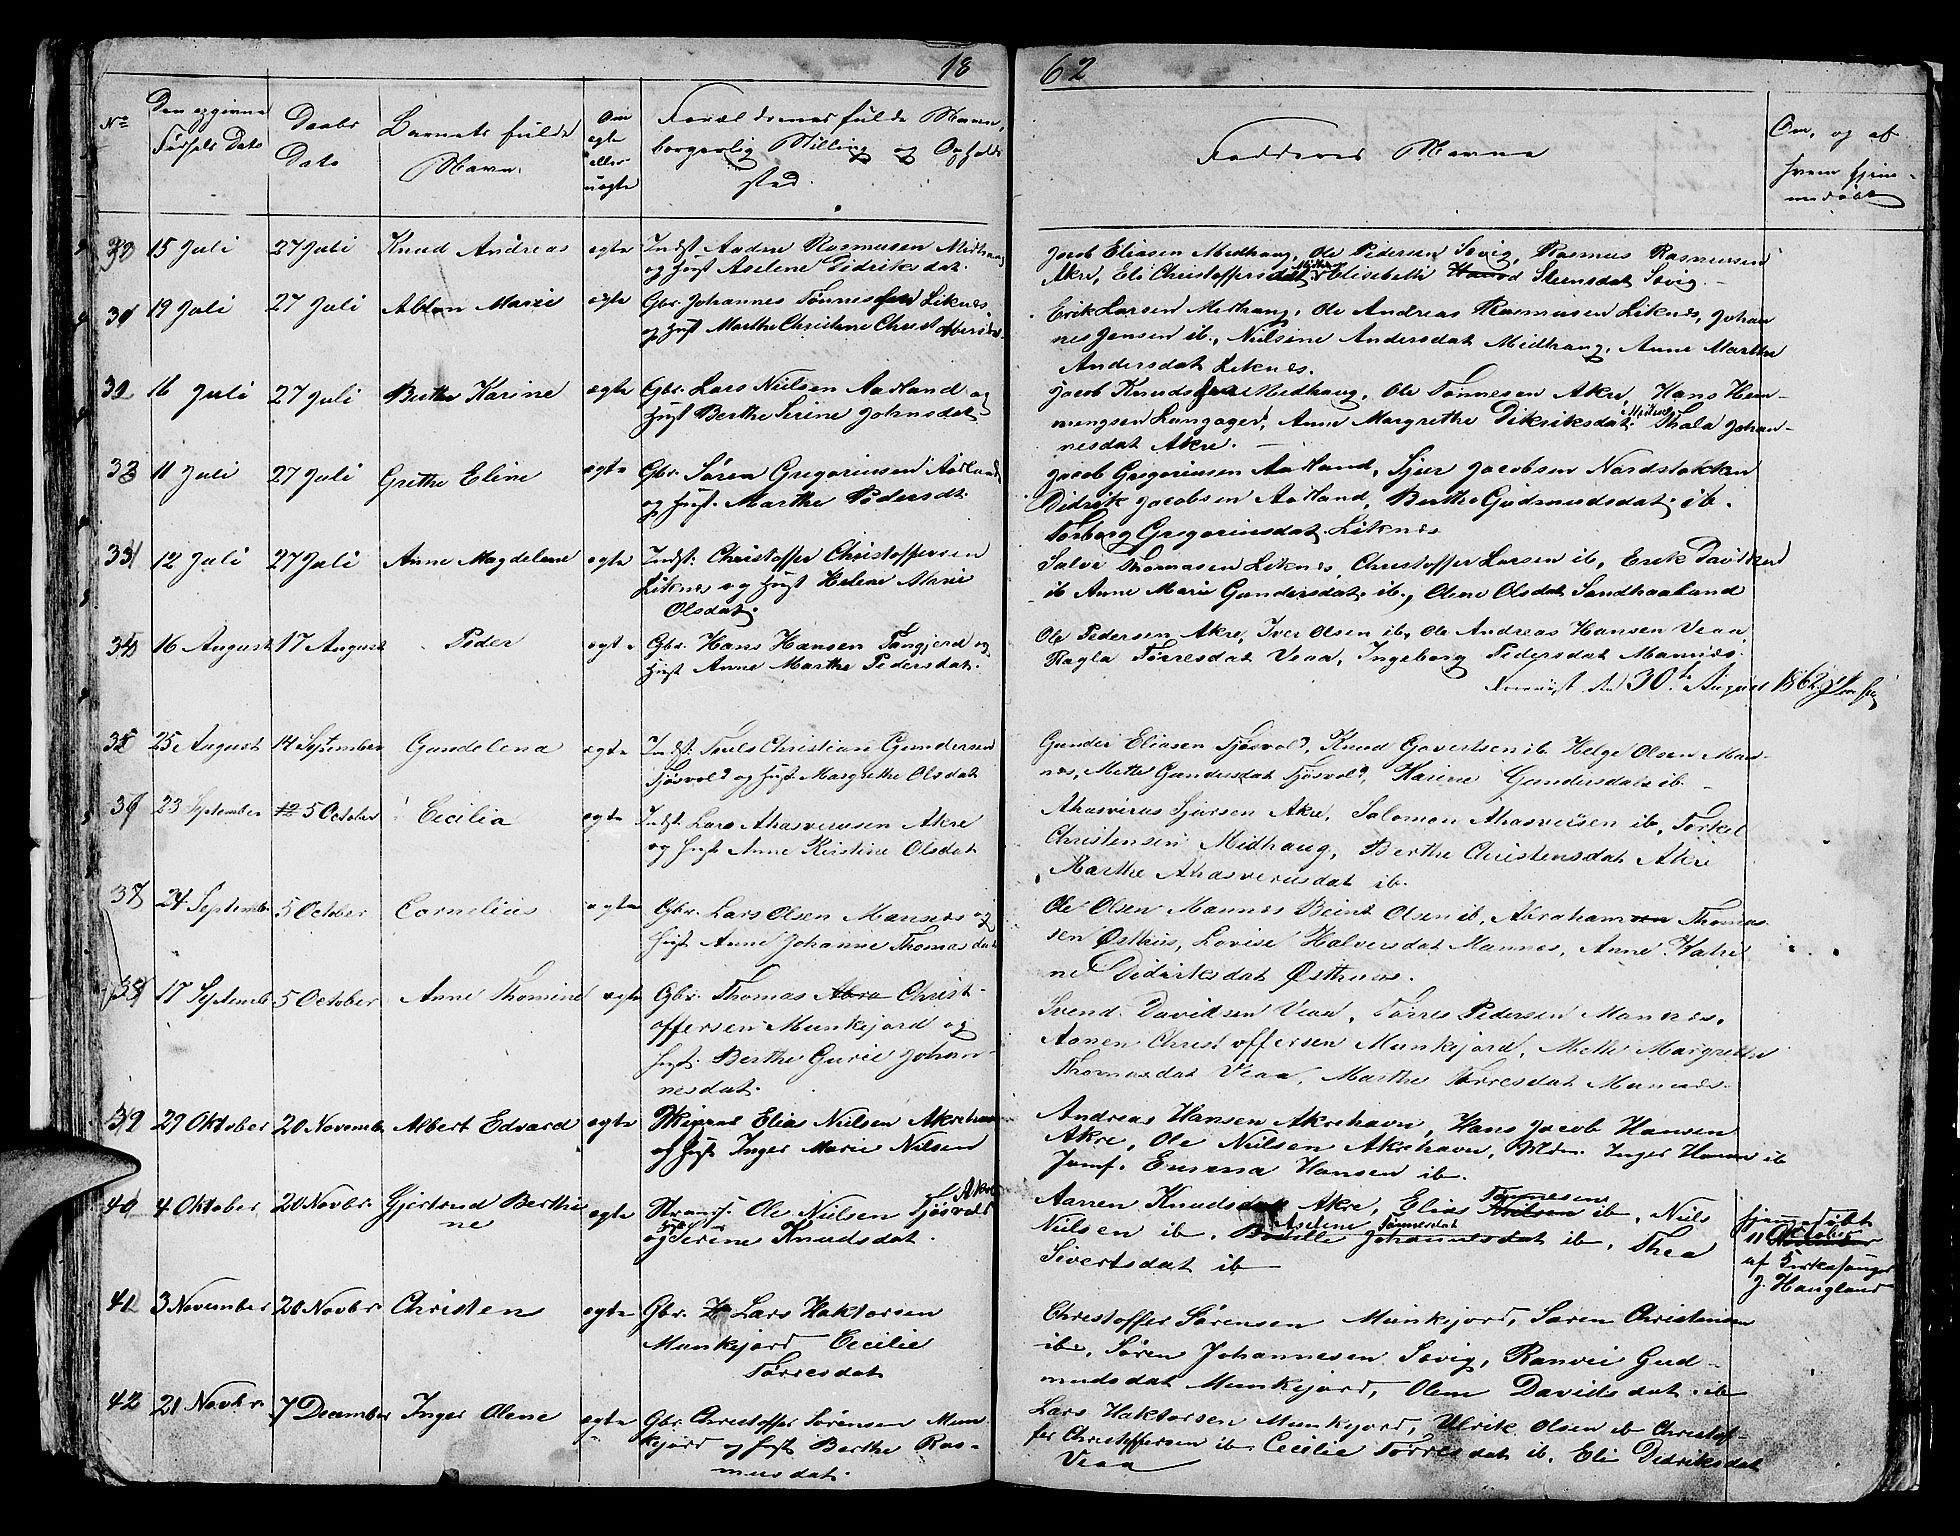 18 62
No
Den opgivne
Fødsels Dato
Daabs
Dato
Barnets fulde
Navn.
Om
egte
eller
uegte
Forældrenes fulde Navn,
borgerlig Stilling og Opholds
sted.
Faddernes Navne
Om, og af
hvem hjem-
medøbt
30 15 Juli 27 Juli Knud Andreas egte Indst. Aadne Rasmussen Midhaug
og Hust Aselene Didriksdat.
Jacob Eliasen Medhaug, Ole Pedersen Sævig, Rasmus Rasmussen
Akre, Eli Christoffersdat Midhaug Elisebeth Steensdat Sævig.
31 19 Juli 27 Juli Marie egte Gbr. Johannes Tønnesen Liknes
og Hust Marthe Christene Christoffersdat.
Erik Larsen Medhaug, Ole Andreas Rasmussen Liknes, Johan
nes Jensen ib., Nielsine Andersdat Midhaug, Anne Marthe
Andersdat Liknes.
32 16 Juli 27 Juli Berthe Karine egte Gbr. Lars Nielsen Aadland og
Hust Berthe Serine Johnsdat
Jacob Knudsen Medhaug, Ole Tønnesen Akre, Hans Hem-
mingsen Langager, Anne Margrethe Dikriksdat Thala Johan-
nesdat Akre.
33 11 Juli 27 Juli Grethe Eline egte Gbr. Søren Gregoriusen Aadland
og Hust. Marthe Pedersdt.
Jacob Gregoriusen Aadland, Sjur Jacobsen Nordstokken
Didrik Jacobsen Aadland, Berthe Gudmundsdat. ib.
Torborg Gregoriusdat Liknes
33 12 Juli 27 Juli Anne Magdelene egte Indst. Christoffer Christoffersen
Liknes og Hust Helene Marie
Olsdat.
Salve Thomasen Liknes, Christoffer Larsen ib, Erik Davidsen
ib Anne Marie Gundersdat. ib., Olene Olsdat Sandhaaland
34 16 August 17 August Peder egte Gbr. Hans Hansen Tangjerd og
Hust Anne Marthe Pedersdat.
Ole Pedersen Akre, Iver Olsen ib, Ole Andreas Hansen Veaa,
Ragla Tørresdat Veaa, Ingeborg Pedersdat Mannes.
Foreviist den 30te August 1862
35 25 August 14 September Gundelena egte Indst. Niels Christian Gundersen
Tjøsvold og Hust Margrethe Olsdat
Gunder Eliasen Tjøsvold, Knud Govertsen ib Helge Olsen Man-
nes, Mette Gundersdat Tjøsvold, Karine Gundersdat ib.
36 23 September 5 October Cecilia egte Indst. Lars Ahasverusen Akre
og Hust Anne Kirstine Olsdat
Ahasverus Sjursen Akre, Salomon Ahasverusen ib, Torkel
Christensen Midhaug, Berthe Christensdat Akre
Marthe Ahasverusdat ib.
37 24 Septembr 5 October Cornelius egte Gbr. Lars Olsen Mannes og
Hust Anne Johanne Thomasdat
Ole Olsen Mannes Beint Olsen ib, Abraham Thomas
sen Østhus, Lovise Halversdat Mannes, Anne Katri
ne Didriksdat Østhuus.
38 17 Septembr 5 October Anne Thomine egte Gbr. Thomas Abra Christ-
offersen Munkejord og
Hust. Berthe Gurie Johan-
nesdat.
Svend Davidsen Veaa, Tørres Pedersen Mannes,
Aanen Christoffersen Munkejord, Mette Margrethe
Thomasdat Veaa, Marthe Tørresdat Mannes.
39 29 Oktober 20 Novembr Albert Edvard egte Skipper Elias Nielsen Akrehavn
og Hust Inger Marie Nielsen
Andreas Hansen Akrehavn, Hans Jacob Hansen
Akre, Ole Nielsen Akrehavn, Mdm. Inger Hansen ib
Jomf. Emma Hansen ib.
40 4 Oktober 20 Novbr. Gjertrud Berthe
ne
egte Strands. Ole Nielsen Tjøsvold Akre
og Hust Serine Knudsdat.
Aanen Knudsen Akre, Elias Nielsen Tønnesen ib, Niels
Nielsen ib. Bodille Johannesdat Aselene Tønnesdat ib, Thea
Sivertsdat ib
hjemmedøbt
11 November Oktober
af Kirkesanger
J. Haugland
41 3 November 20 Novbr. Christen egte Gbr. Lars Haktorsen
Munkejord Cecilie
Tørresdat
Christoffer Sørensen Munkejord, Søren Christensen
ib, Søren Johannesen Søvig, Ranvei Gud-
mundsdat Munkejord, Olene Davidsdat. ib
42 21 Novbr. 7 December Inger Olene egte Gbr. Christoffer Sørensen Mun-
kejord og Hust Berthe Ras-
musdat.
Lars Haktorsen Munkejord, Ulrik Olsen ib Christof-
fer Christoffersen ib. Cecilie Tørresdat ib, Eli Didriksdat
Veaa